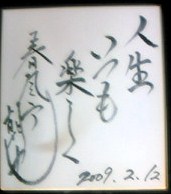 人生
いつも
楽しく
春風亭
2009.2.12